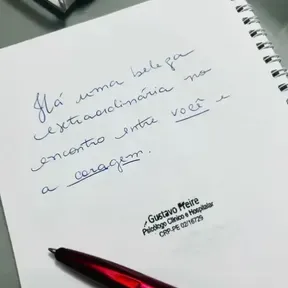 Há uma beleza
extraordinária no
encontro entre você e
a coragem.
Gustavo Freire
Psicólogo Clínico e Hospitalar
CRP-PE 02/16729